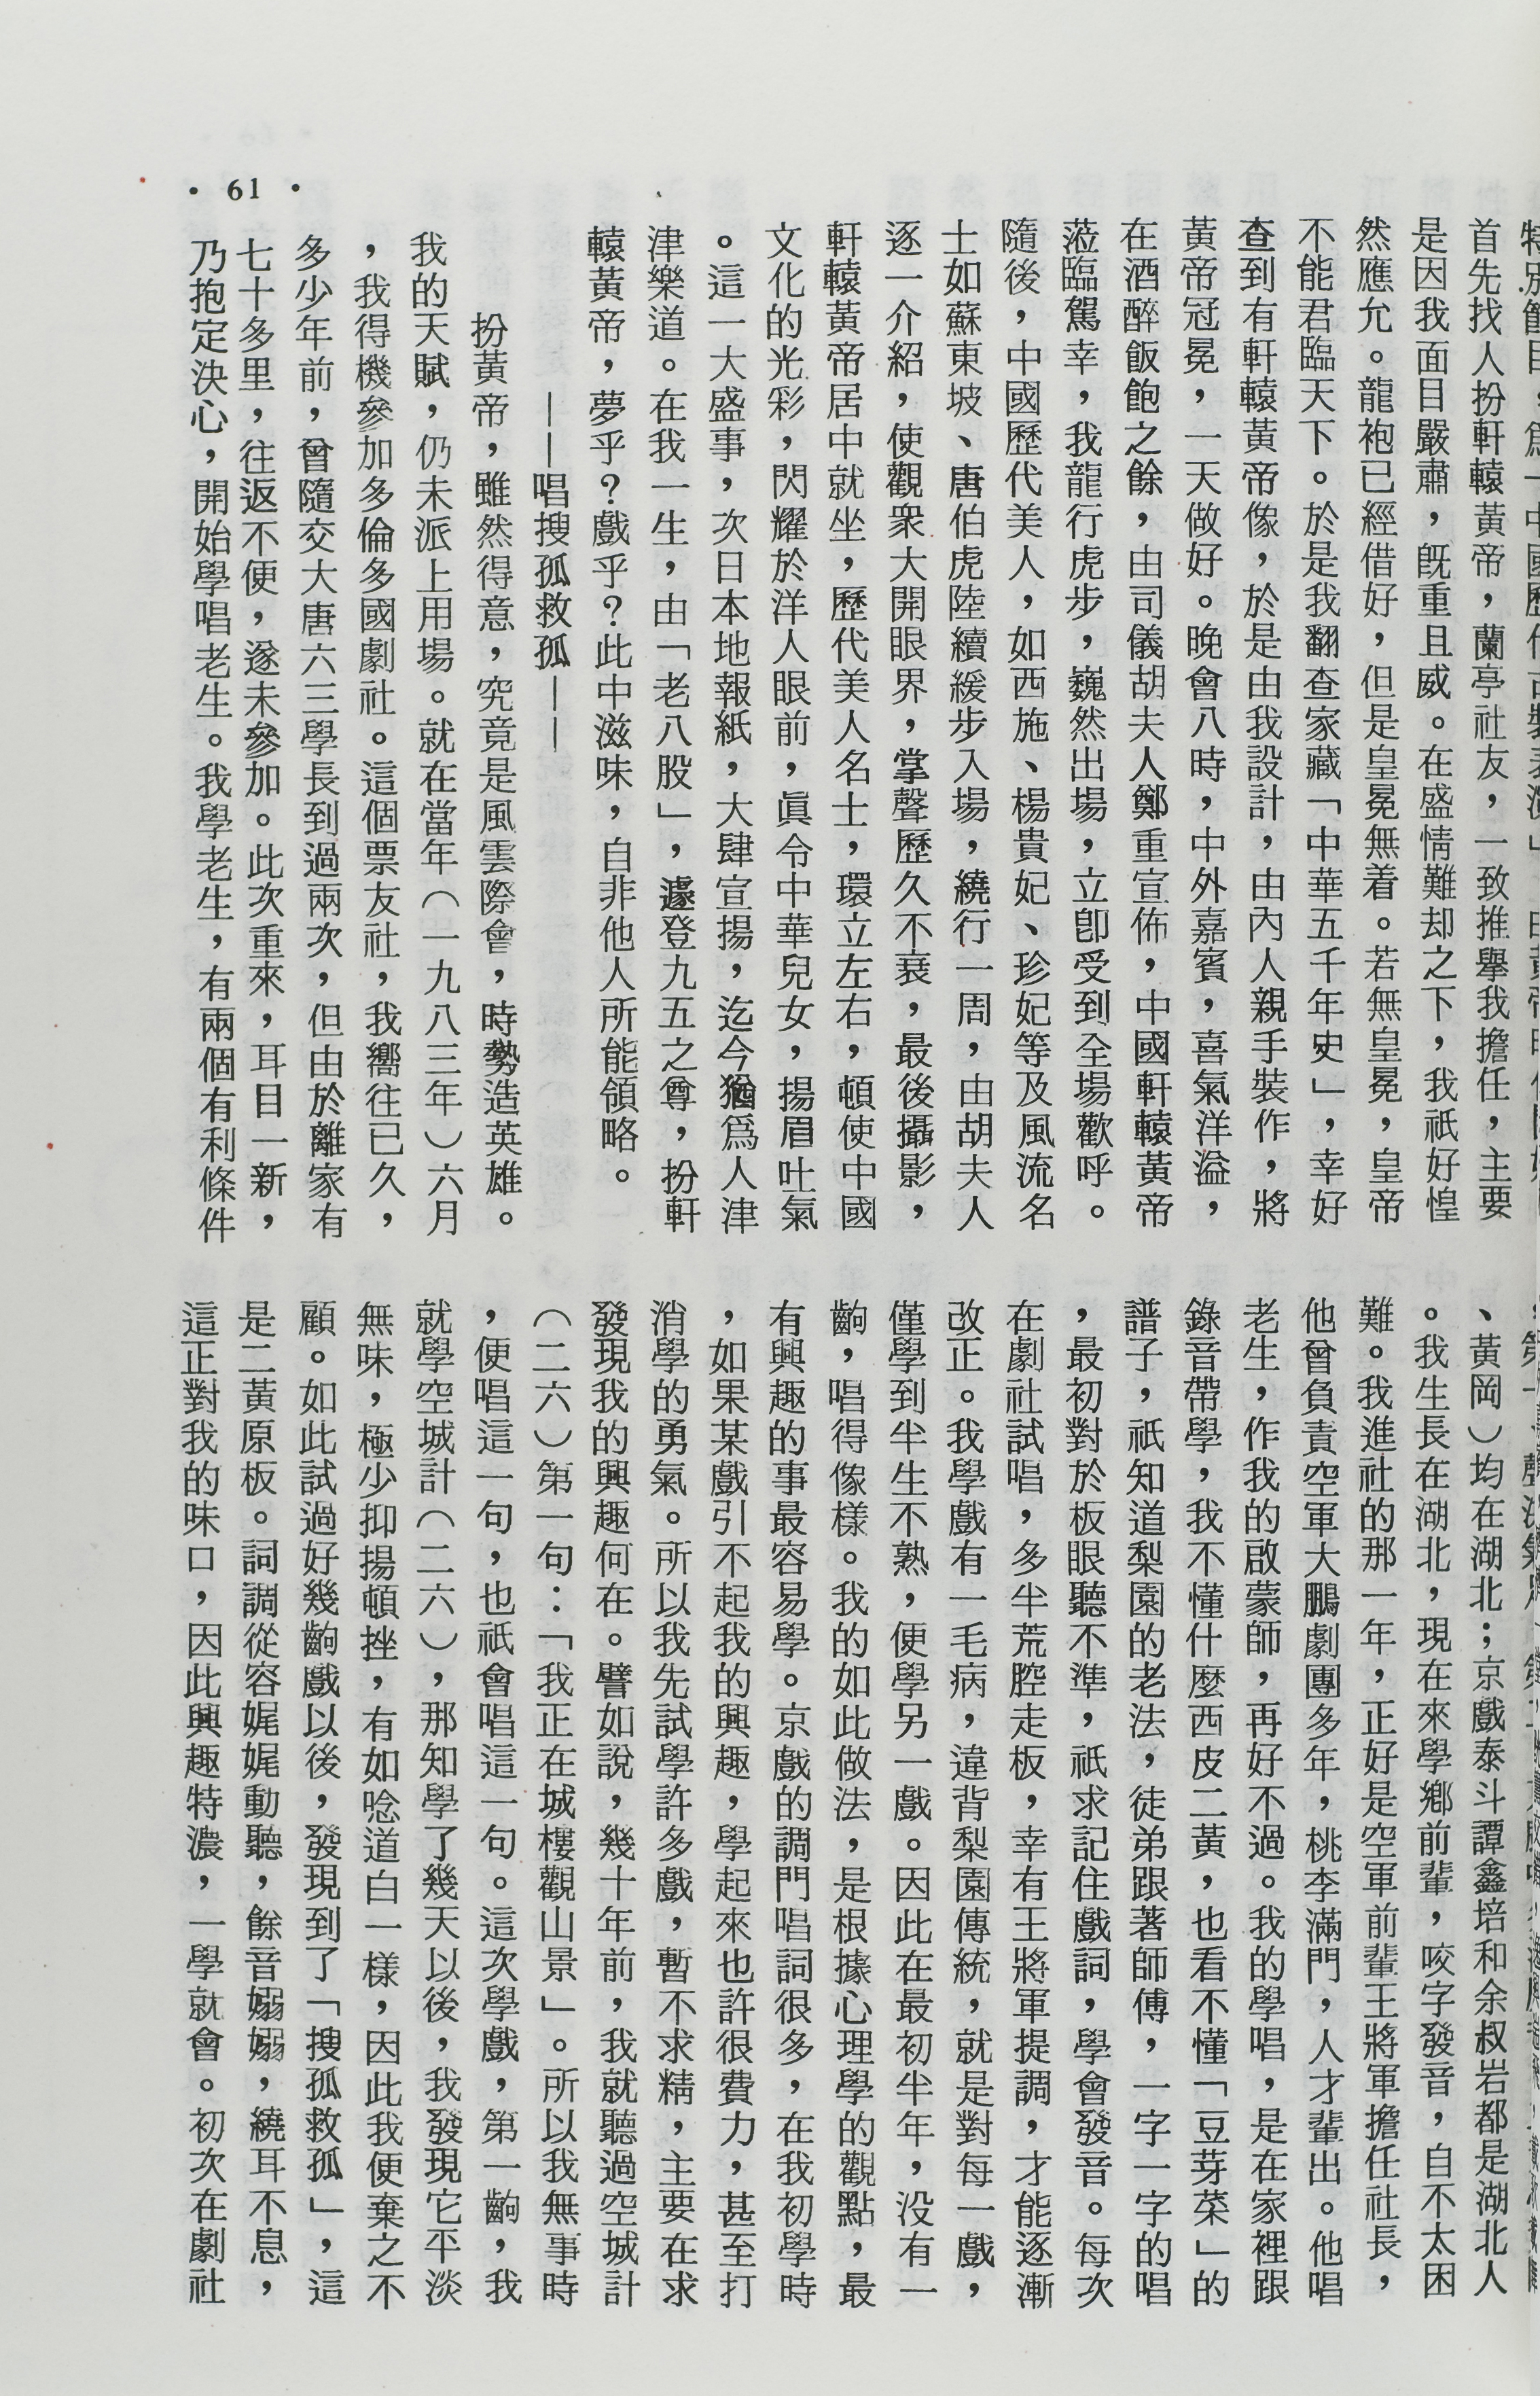 首先找人扮軒轅黃帝，蘭亭社友，一致推舉我擔任，主要
是因我面目嚴肅，既重且威。在盛情難却之下，我祇好惶
然應允。龍袍已經借好，但是皇冕無着。若無皇冕，皇帝
不能君臨天下。於是我翻查家藏「中華五千年史」，幸好
查到有軒轅黃帝像，於是由我設計，由內人親手裝作，將
黃帝冠冕，一天做好。晚會八時，中外嘉賓，喜氣洋溢，
在酒醉飯飽之餘，由司儀胡夫人鄭重宣佈，中國軒轅黃帝
蒞臨駕幸，我龍行虎步，巍然出場，立卽受到全場歡呼。
隨後，中國歷代美人，如西施、楊貴妃、珍妃等及風流名
士如蘇東坡、唐伯虎陸續緩步入場，繞行一周，由胡夫人
逐一介紹，使觀衆大開眼界，掌聲歷久不衰，最後攝影，
軒轅黃帝居中就坐，歷代美人名士，環立左右，頓使中國
文化的光彩，閃耀於洋人眼前，眞令中華兒女，揚眉吐氣
。這一大盛事，次日本地報紙，大肆宣揚，迄今猶爲人津
津樂道。在我一生，由「老八股」，遽登九五之尊，扮軒
轅黃帝，夢乎？戲乎？此中滋味，自非他人所能領略。
——唱搜孤救孤——
扮黃帝，雖然得意，究竟是風雲際會，時勢造英雄。
我的天賦，仍未派上用場。就在當年（一九八三年）六月
，我得機參加多倫多國劇社。這個票友社，我嚮往已久，
多少年前，曾隨交大唐六三學長到過兩次，但由於離家有
七十多里，往返不便，遂未參加。此次重來，耳目一新，
乃抱定決心，開始學唱老生。我學老生，有兩個有利條件
、黃岡）均在湖北；京戲泰斗譚鑫培和余叔岩都是湖北人
。我生長在湖北，現在來學鄉前輩，咬字發音，自不太困
難。我進社的那一年，正好是空軍前輩王將軍擔任社長，
他曾負責空軍大鵬劇團多年，桃李滿門，人才輩出。他唱
老生，作我的啟蒙師，再好不過。我的學唱，是在家裡跟
錄音帶學，我不懂什麼西皮二黃，也看不懂「豆芽菜」的
譜子，祇知道梨園的老法，徒弟跟著師傅，一字一字的唱
，最初對於板眼聽不準，祇求記住戲詞，學會發音。每次
在劇社試唱，多半荒腔走板，幸有王將軍提調，才能逐漸
改正。我學戲有一毛病，違背梨園傳統，就是對每一戲，
僅學到半生不熟，便學另一戲。因此在最初半年，没有一
齣，唱得像樣。我的如此做法，是根據心理學的觀點，最
有興趣的事最容易學。京戲的調門唱詞很多，在我初學時
，如果某戲引不起我的興趣，學起來也許很費力，甚至打
消學的勇氣。所以我先試學許多戲，暫不求精，主要在求
發現我的興趣何在。譬如說，幾十年前，我就聽過空城計
（二六）第一句：「我正在城樓觀山景」。所以我無事時
，便唱這一句，也祇會唱這一句。這次學戲，第一齣，我
就學空城計（二六），那知學了幾天以後，我發現它平淡
無味，極少抑揚頓挫，有如唸道白一樣，因此我便棄之不
顧。如此試過好幾齣戲以後，發現到了「搜孤救孤」，這
是二黃原板。詞調從容娓娓動聽，餘音嫋嫋，繞耳不息，
這正對我的味口，因此興趣特濃，一學就會。初次在劇社
• 61 •